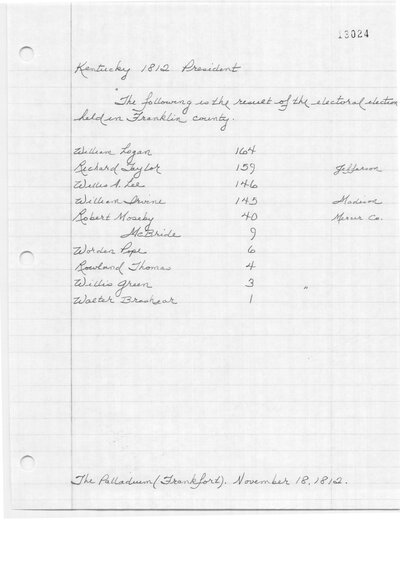 13024
Kentucky 1812 President
"The following is the result of the electoral election
held in Franklin county.
William Logan 164
Richard Taylor 159 Jefferson
Willis A. Lee 146
William Irvine 145 Madison
Robert Moseby 40 Mercer Co.
McBride 9
Worden Pope 6
Rowland Thomas 4
Willis Green 3 "
Walter Brashear 1
The Palladium (Frankfort). November 18, 1812.